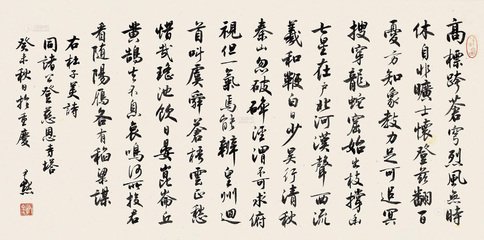 高標跨蒼穹烈風無時
休自非曠士懷登茲翻百
憂方知象教力足可追冥
搜穿龍蛇窟始出枝撐幽
七星在戶北河漢聲西流
羲和鞭白日少昊行清秋
秦山忽破碎涇渭不可求俯
視但一氣焉能辨皇州迴
首叫虞舜蒼梧雲正愁
惜哉瑤池飲日晏崑崙丘
黃鵠去不息哀鳴何所投君
看隨陽雁各有稻粱謀
右杜子美詩
同諸公登慈恩寺塔
癸未秋日於重慶
尹默